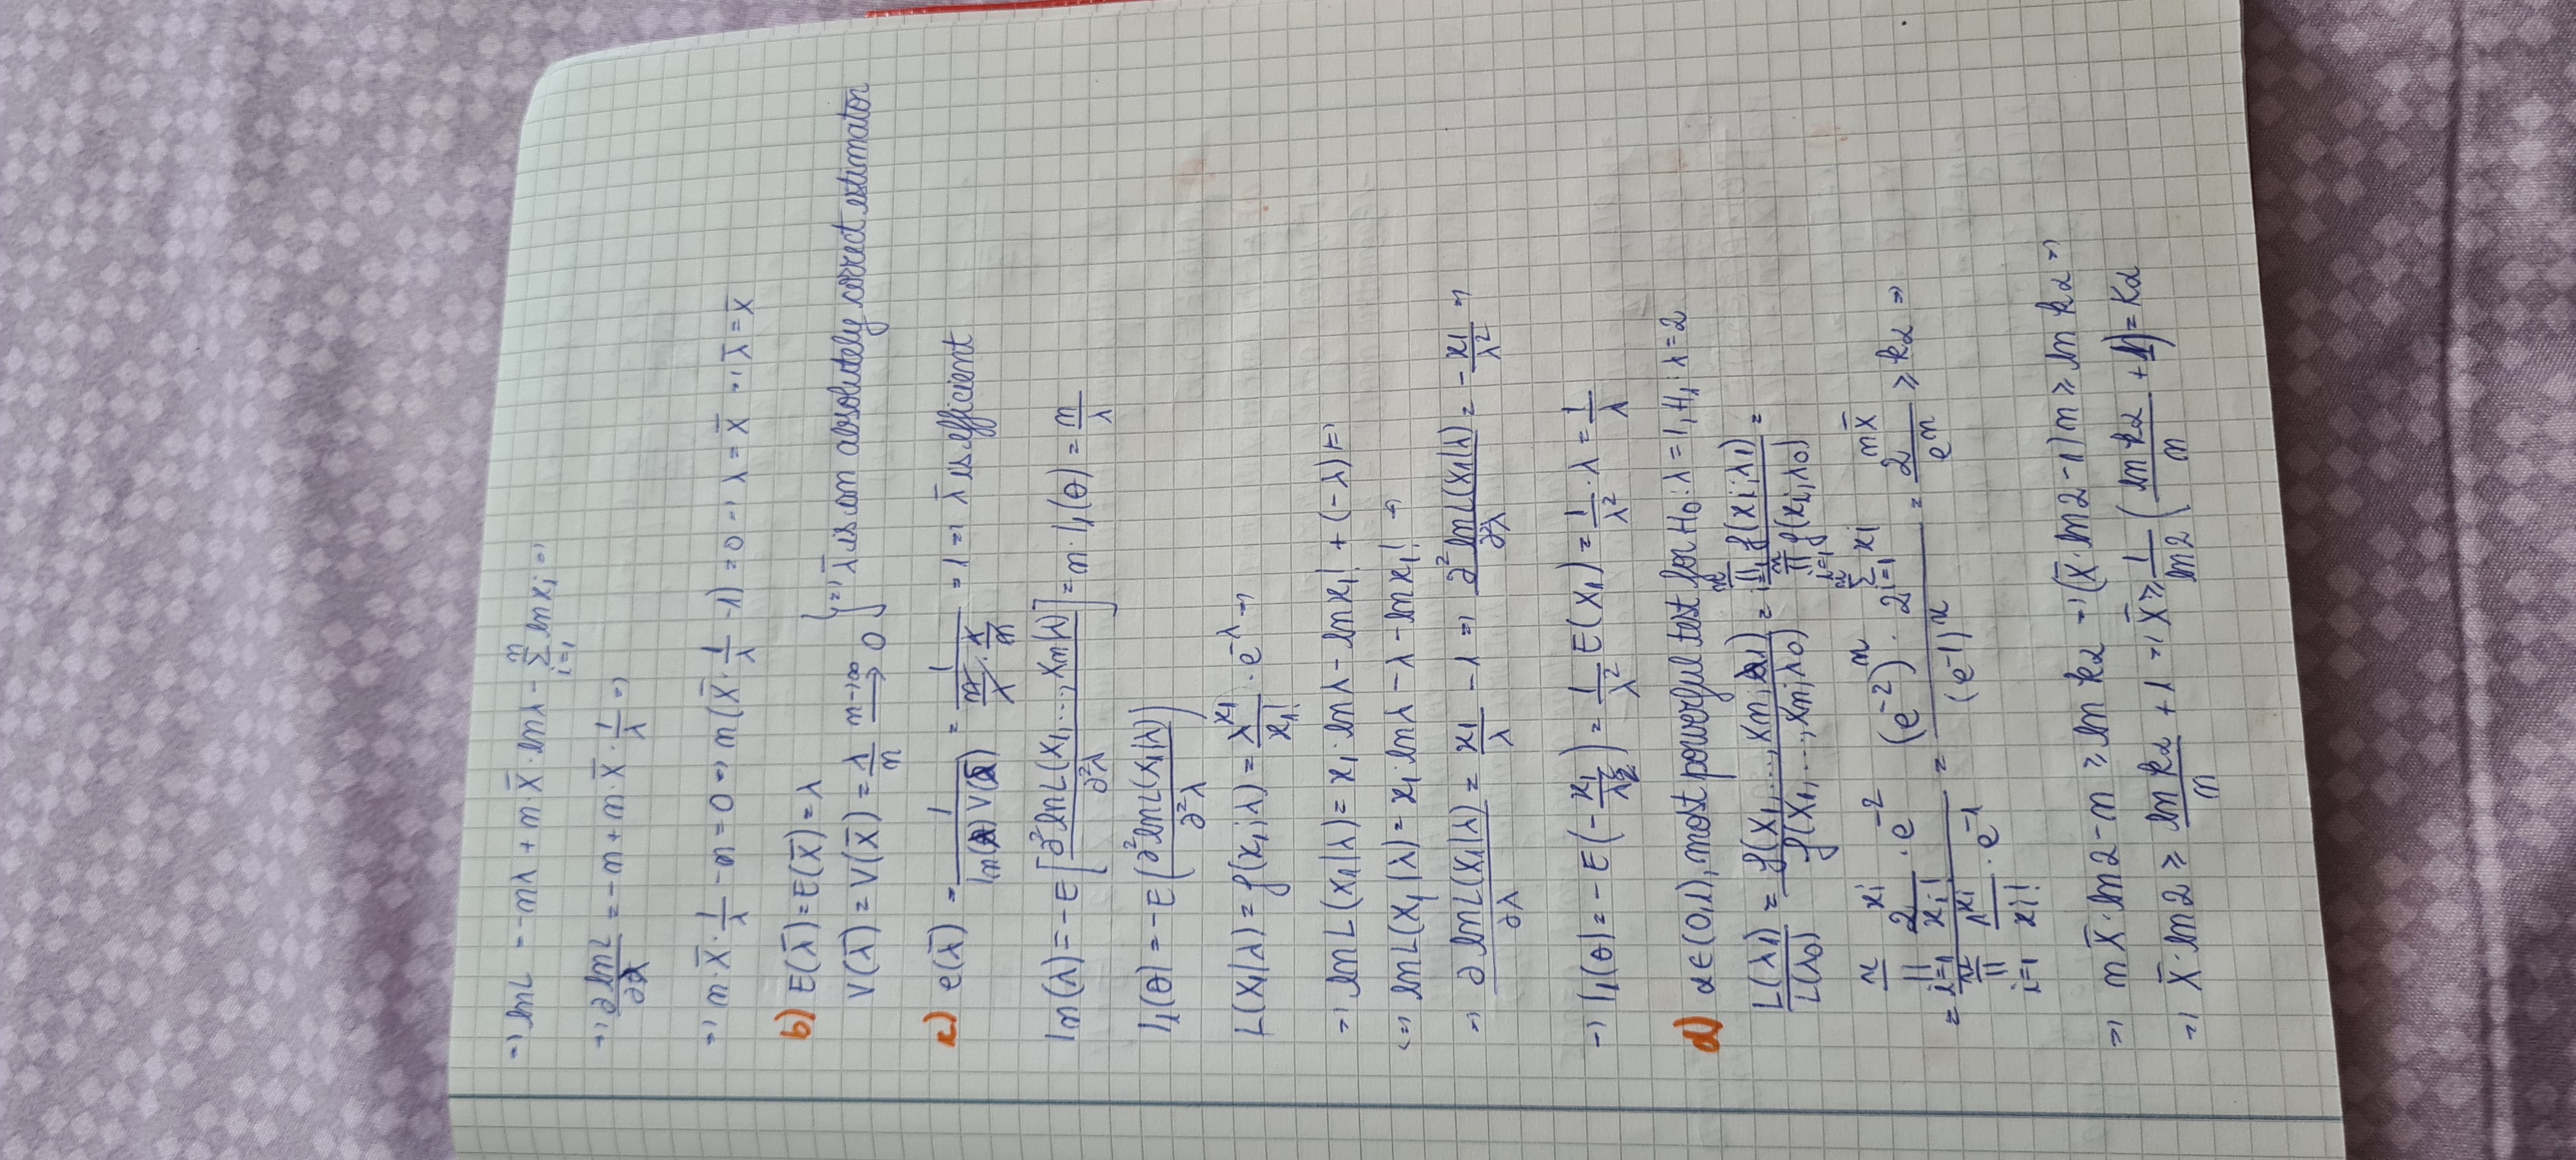 ⇒ ln L = -nλ + n·X̄·lnλ - Σ_{i=1}^{n} ln x_i ⇒
⇒ ∂ ln L / ∂λ = -n + n·X̄·1/λ ⇒
⇒ n·X̄·1/λ - n = 0 ⇒ n(X̄·1/λ - 1) = 0 ⇒ λ = X̄ ⇒ λ̄ = X̄
b) E(λ̄) = E(X̄) = λ
V(λ̄) = V(X̄) = λ/n →^{n→∞} 0 } ⇒ λ̄ is an absolutely correct estimator
c) e(λ̄) = 1/(In(λ) V(λ̄)) = 1/(n/λ · λ/n) = 1 ⇒ λ̄ is efficient
In(λ) = -E[∂² ln L(X₁,...,Xn|λ) / ∂²λ] = n·I₁(θ) = n/λ
I₁(θ) = -E(∂² ln L(X₁|λ) / ∂²λ)
L(X₁|λ) = f(x₁;λ) = λ^{x₁}/x₁! · e^{-λ} ⇒
⇒ ln L(X₁|λ) = x₁·lnλ - ln x₁! + (-λ) ⇔
⇔ ln L(X₁|λ) = x₁·lnλ - λ - ln x₁! ⇒
⇒ ∂ ln L(X₁|λ) / ∂λ = x₁/λ - 1 ⇒ ∂² ln L(X₁|λ) / ∂²λ = -x₁/λ² ⇒
⇒ I₁(θ) = -E(-x₁/λ²) = 1/λ² E(X₁) = 1/λ² · λ = 1/λ
d) α∈(0,1), most powerful test for H₀: λ = 1, H₁: λ = 2
L(λ₁)/L(λ₀) = f(X₁,...,Xn;λ₁) / f(X₁,...,Xn;λ₀) = ∏_{i=1}^{n} f(xi;λ₁) / ∏_{i=1}^{n} f(xi;λ₀) =
= ∏_{i=1}^{n} 2^{xi}/xi! · e^{-2} / ∏_{i=1}^{n} 1^{xi}/xi! · e^{-1} = (e^{-2})^n · 2^{Σ_{i=1}^{n} xi} / (e^{-1})^n = 2^{nX̄}/e^n ≥ kα ⇒
⇒ nX̄·ln2 - n ≥ ln kα ⇒ (X̄·ln2 - 1)n ≥ ln kα ⇒
⇒ X̄·ln2 ≥ ln kα/n + 1 ⇒ X̄ ≥ 1/ln2 (ln kα/n + 1) = Kα